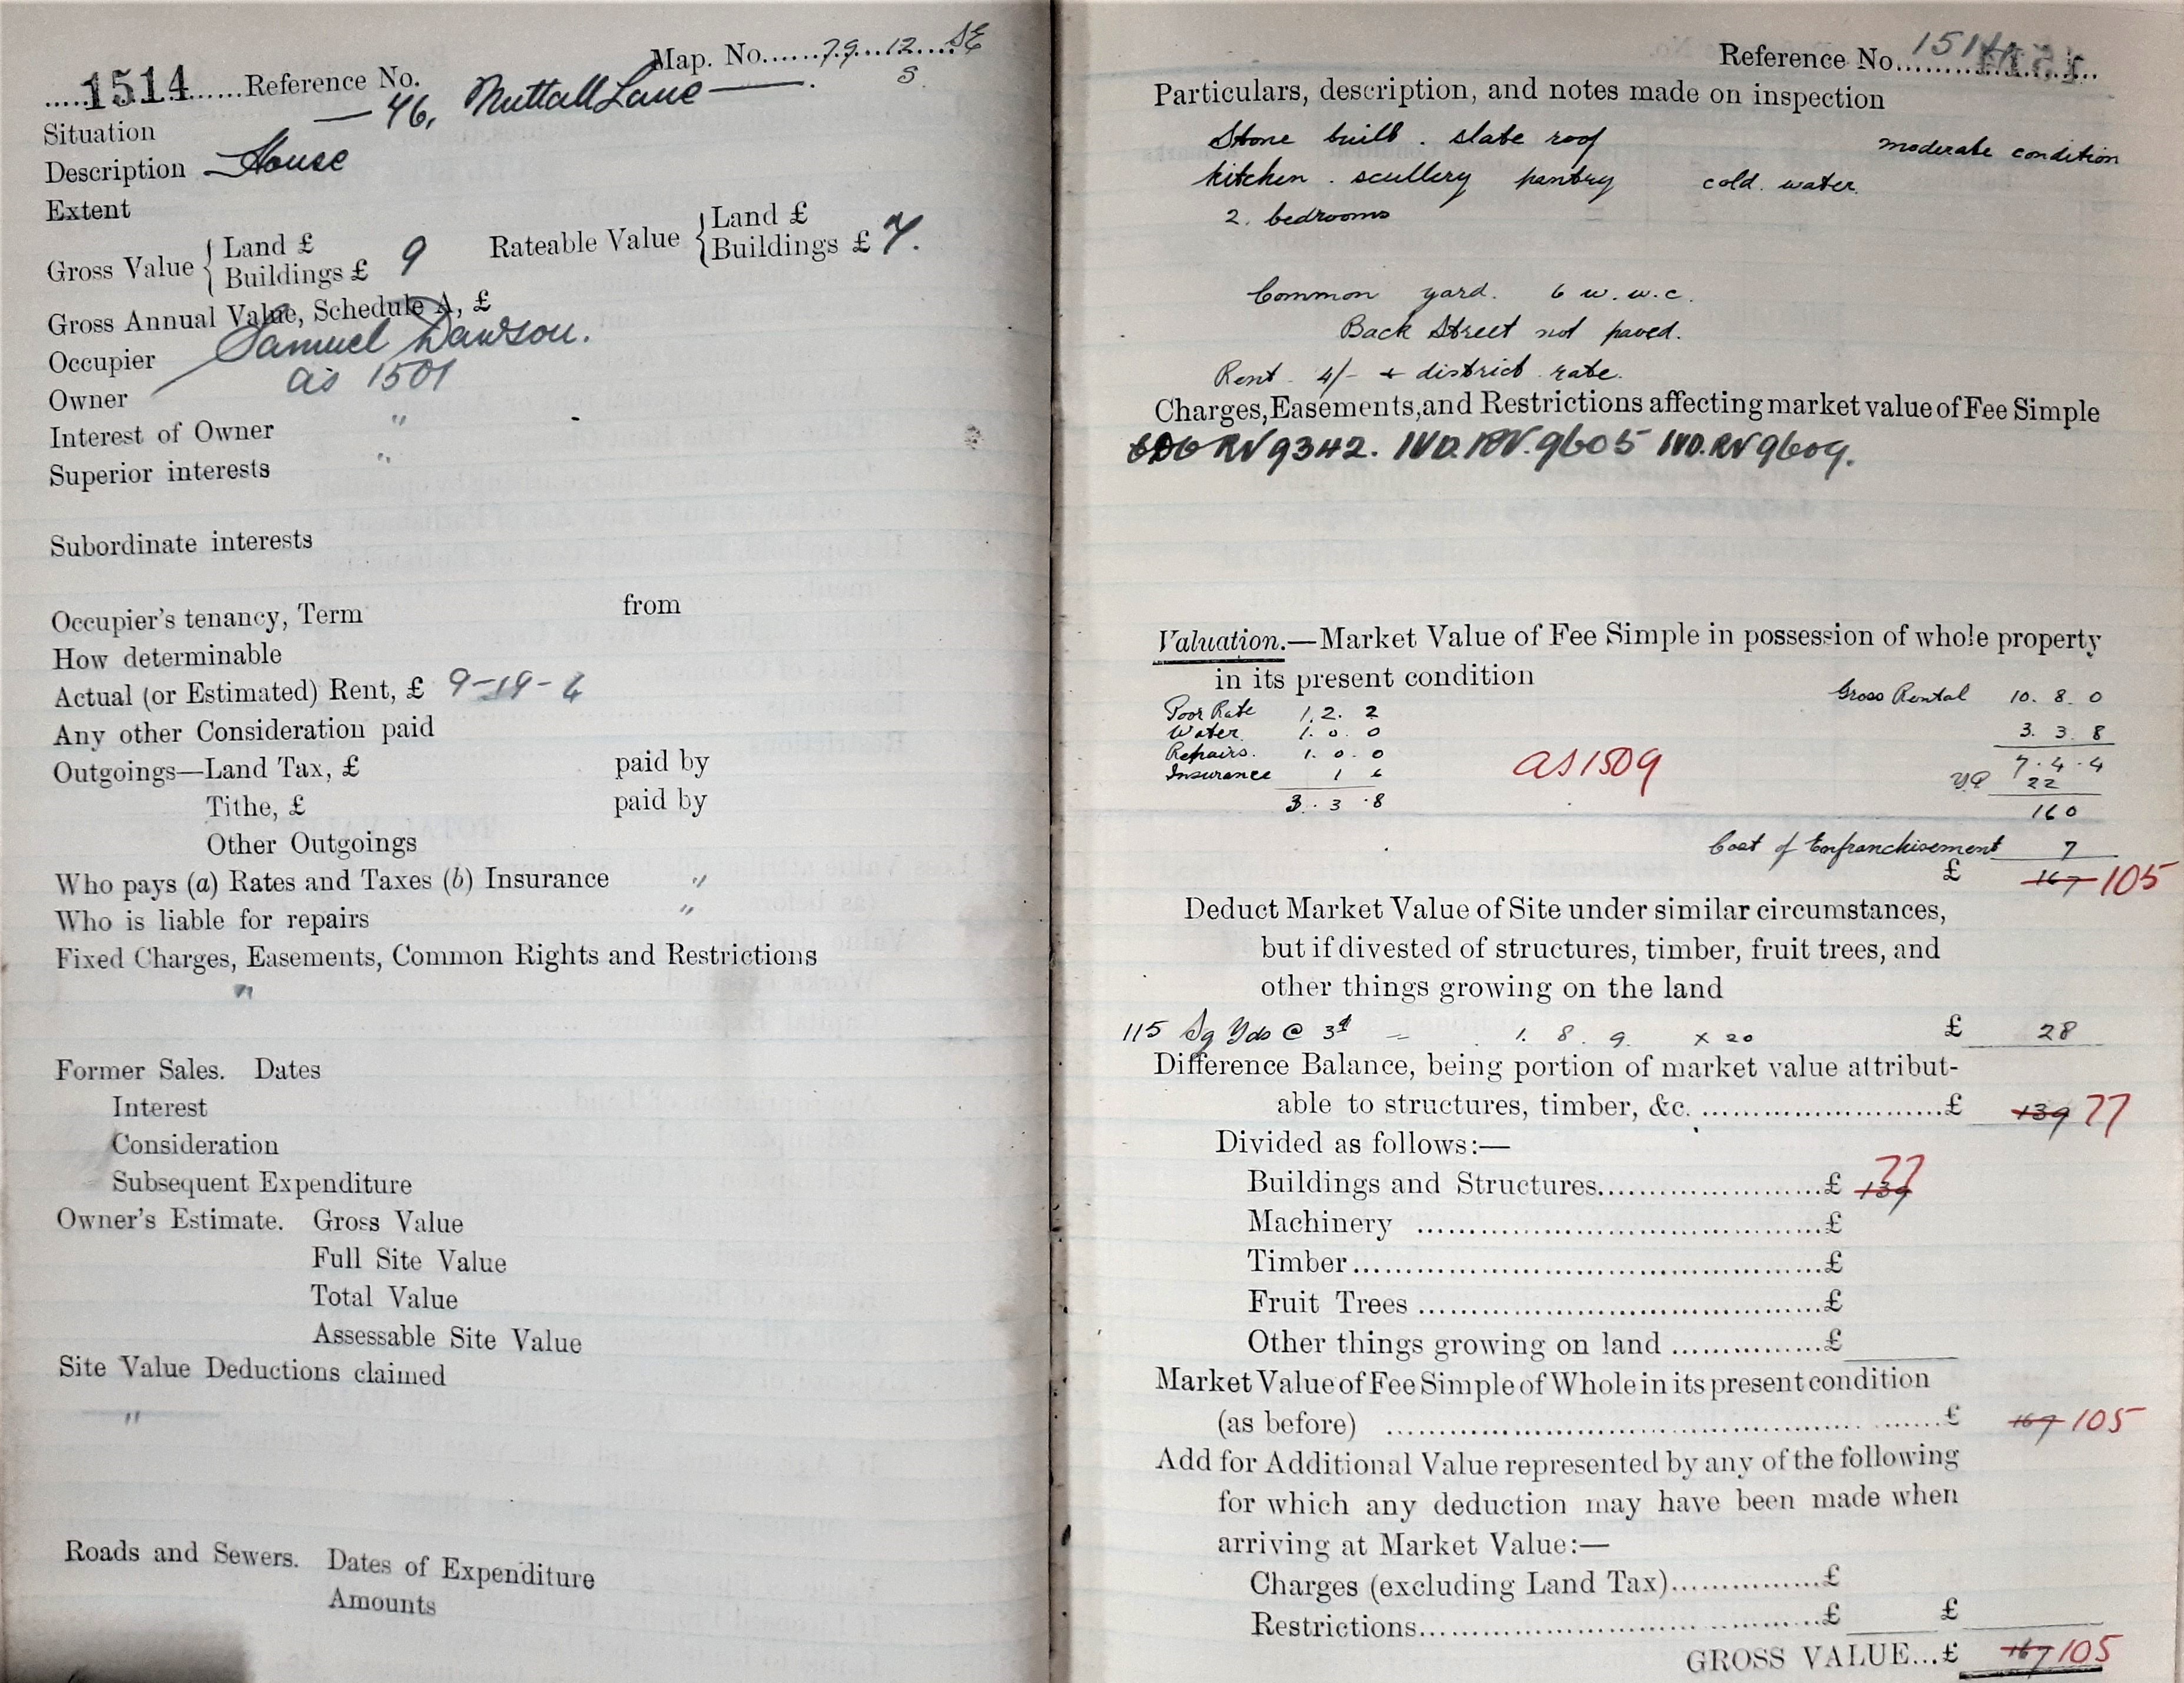 1514 Reference No. Map. No. 79 12 SE
5
Situation — 46, Nuttall Lane —
Description House
Extent
Gross Value { Land £
Buildings £ 9
Rateable Value { Land £
Buildings £ 7.
Gross Annual Value, Schedule A, £
Occupier Samuel Dawson.
Owner as 1501
Interest of Owner "
Superior interests "
Subordinate interests
Occupier's tenancy, Term from
How determinable
Actual (or Estimated) Rent, £ 9-19-4
Any other Consideration paid
Outgoings—Land Tax, £ paid by
Tithe, £ paid by
Other Outgoings
Who pays (a) Rates and Taxes (b) Insurance "
Who is liable for repairs "
Fixed Charges, Easements, Common Rights and Restrictions
"
Former Sales. Dates
Interest
Consideration
Subsequent Expenditure
Owner's Estimate. Gross Value
Full Site Value
Total Value
Assessable Site Value
Site Value Deductions claimed
"
Roads and Sewers. Dates of Expenditure
Amounts
Reference No. 1514
Particulars, description, and notes made on inspection
Stone built. slate roof moderate condition
kitchen. scullery pantry cold. water.
2. bedrooms
Common yard. 6 w.w.c.
Back Street not paved.
Rent 4/- + district rate.
Charges, Easements, and Restrictions affecting market value of Fee Simple
RV 9342. IVD. RV. 9605 IVD. RV 9609.
Valuation.—Market Value of Fee Simple in possession of whole property
in its present condition
Gross Rental 10. 8. 0
Poor Rate 1. 2. 2
Water. 1. 0. 0 3. 3. 8
Repairs. 1. 0. 0 as 1509 7. 4. 4
Insurance 1 6 YP 22
3. 3. 8 160
Cost of Enfranchisement 7
£ 167 105
Deduct Market Value of Site under similar circumstances,
but if divested of structures, timber, fruit trees, and
other things growing on the land
115 Sq Yds @ 3d = 1. 8. 9. x 20 £ 28
Difference Balance, being portion of market value attribut-
able to structures, timber, &c. £ 139 77
Divided as follows:—
Buildings and Structures £ 139 77
Machinery £
Timber £
Fruit Trees £
Other things growing on land £
Market Value of Fee Simple of Whole in its present condition
(as before) £ 167 105
Add for Additional Value represented by any of the following
for which any deduction may have been made when
arriving at Market Value:—
Charges (excluding Land Tax) £
Restrictions £ £
GROSS VALUE...£ 167 105